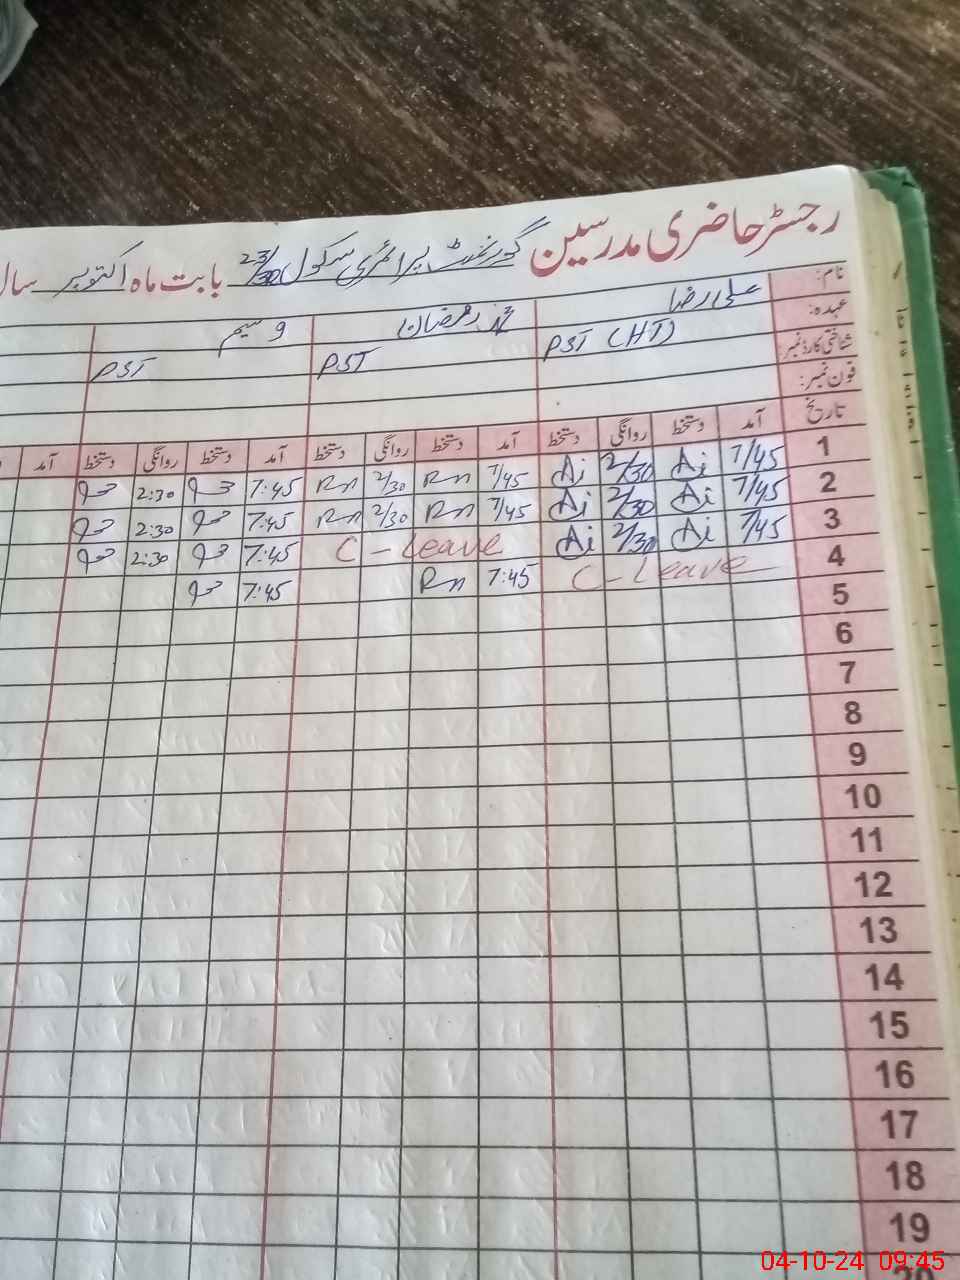 رجسٹر حاضری مدرسین گورنمنٹ پرائمری سکول 23/30 بابت ماہ اکتوبر سال
نام: علی رضا محمد رمضان وسیم
عہدہ: PST (HT) PST PST
شناختی کارڈ نمبر:
فون نمبر:
تاریخ آمد دستخط روانگی دستخط آمد دستخط روانگی دستخط آمد دستخط روانگی دستخط آمد
1 7/45 Ai 2/30 Ai 7/45 Rn 2/30 Rn 7:45 2:30
2 7/45 Ai 2/30 Ai 7/45 Rn 2/30 Rn 7:45 2:30
3 7/45 Ai 2/30 Ai C-Leave 7:45 2:30
4 C-Leave 7:45 Rn 7:45
5
6
7
8
9
10
11
12
13
14
15
16
17
18
19
20
04-10-24 09:45